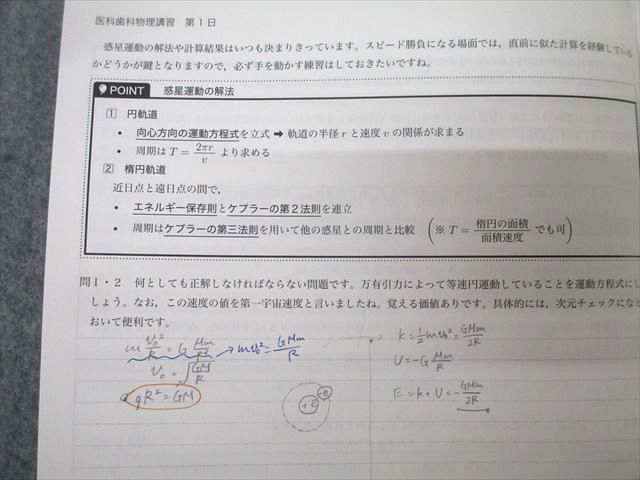 医科歯科物理講習 第1日
惑星運動の解法や計算結果はいつも決まりきっています。スピード勝負になる場面では，直前に似た計算を経験している
かどうかが鍵となりますので，必ず手を動かす練習はしておきたいですね。
POINT 惑星運動の解法
① 円軌道
• 向心方向の運動方程式を立式 ➡ 軌道の半径 r と速度 v の関係が求まる
• 周期は T = 2πr/v より求める
② 楕円軌道
近日点と遠日点の間で，
• エネルギー保存則とケプラーの第2法則を連立
• 周期はケプラーの第三法則を用いて他の惑星との周期と比較 (※ T = 楕円の面積/面積速度 でも可)
問1・2 何としても正解しなければならない問題です。万有引力によって等速円運動していることを運動方程式にし
しょう。なお，この速度の値を第一宇宙速度と言いましたね。覚える価値ありです。具体的には，次元チェックになど
おいて便利です。
m v₀²/R = G Mm/R² → mv₀² = GMm/R
v₀ = √(GM/R)
gR² = GM
+e -e
K = 1/2 mv₀² = GMm/2R
U = -G Mm/R
E = K + U = - GMm/2R